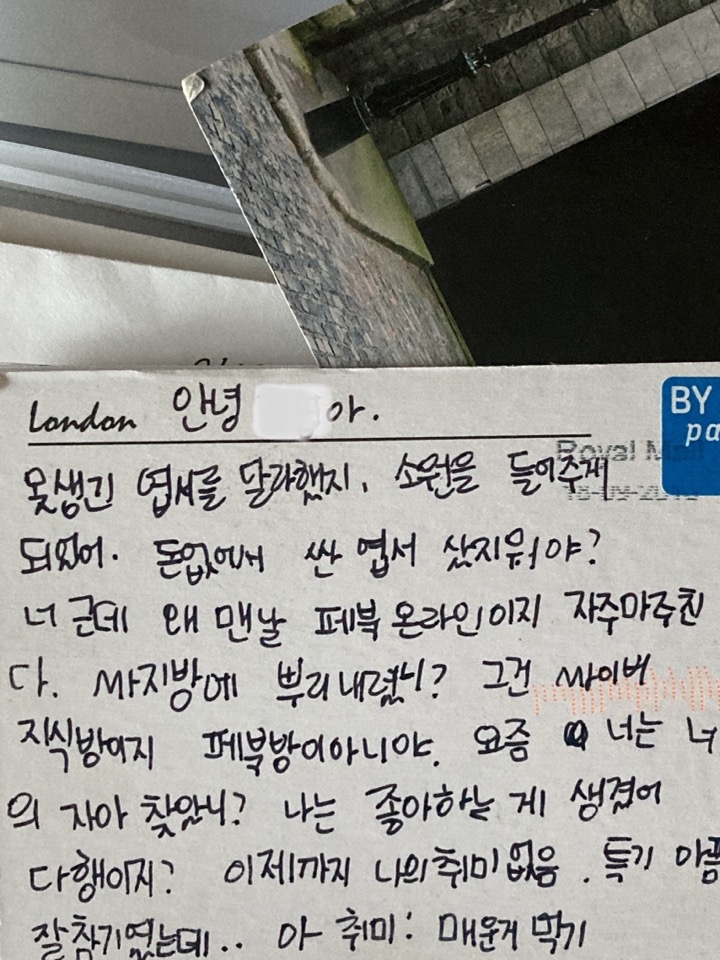 London 안녕 아.
BY
pa
Royal M
못생긴 엽서를 달라했지. 소원을 들어주게
되었어. 돈없어서 싼 엽서 샀지뭐야?
너 근데 왜 맨날 페북 온라인이지 자주마주친
다. 싸지방에 뿌리내렸니? 그건 싸이버
지식방이지 페북방이아니야. 요즘 너는 너
의 자아 찾았니? 나는 좋아하는 게 생겼어
다행이지? 이제까지 나의취미없음. 특기 아픔
잘참기였는데.. 아 취미: 매운거 먹기